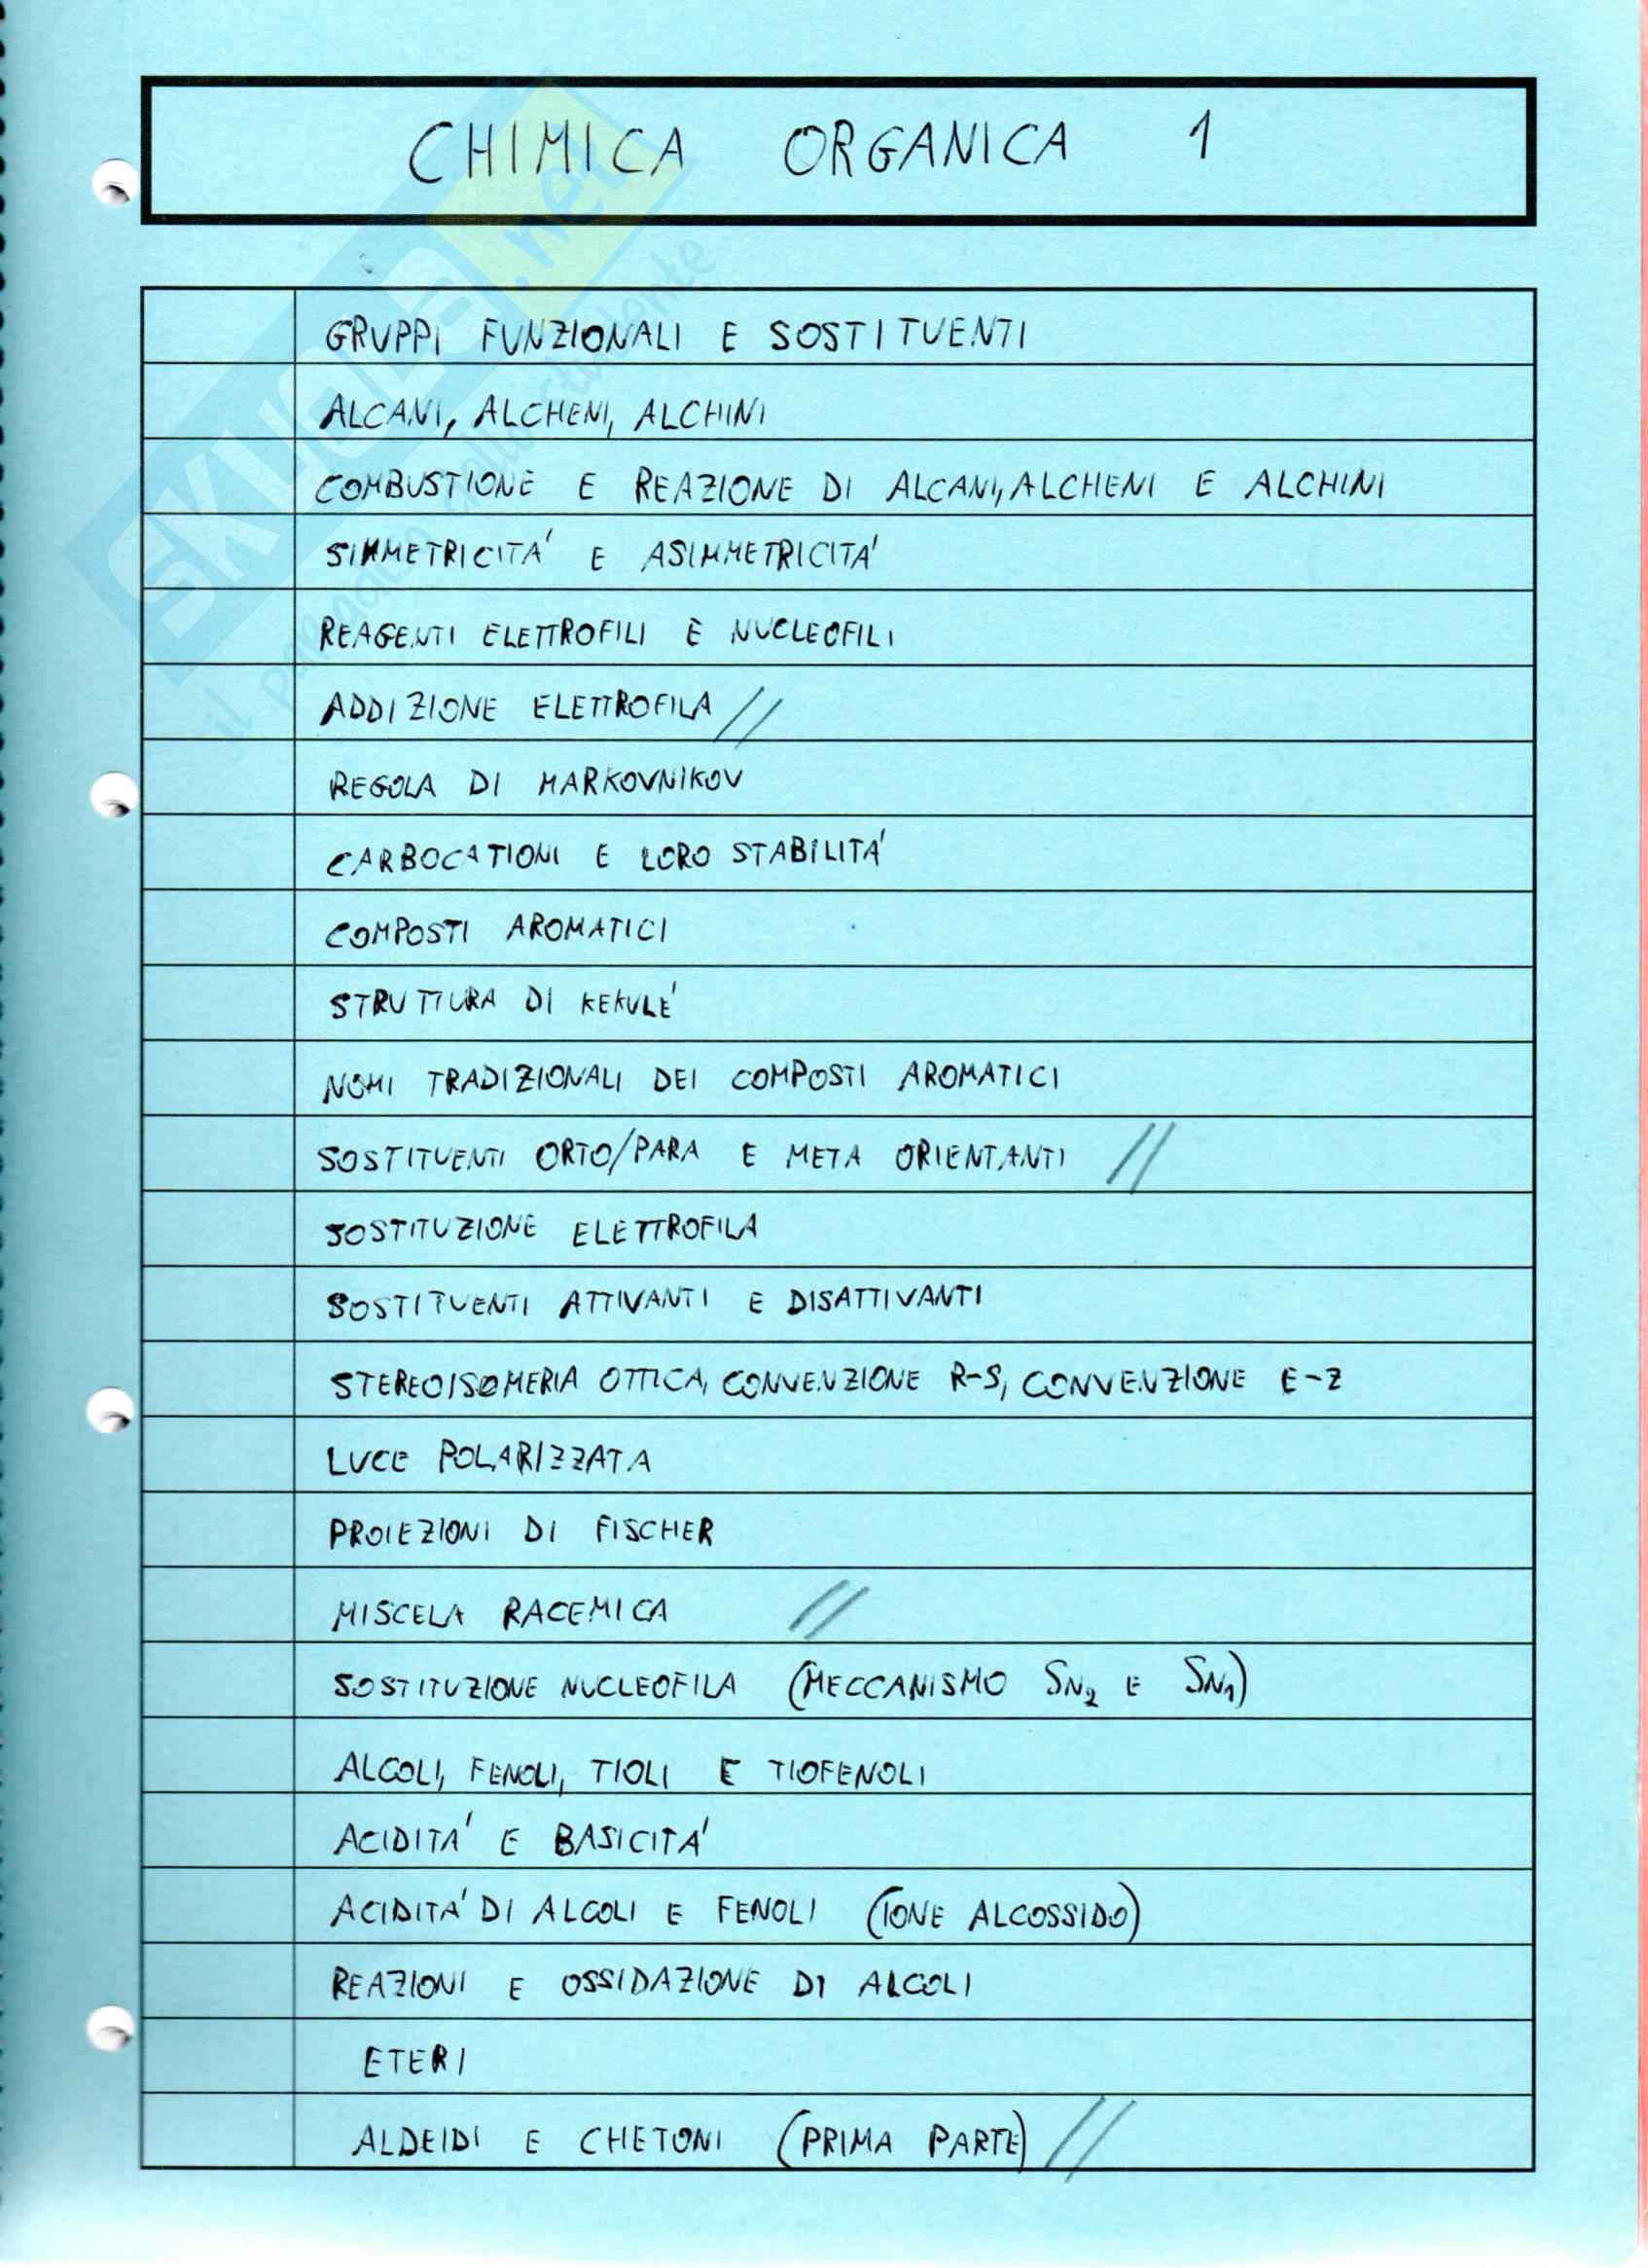 CHIMICA ORGANICA 1
GRUPPI FUNZIONALI E SOSTITUENTI
ALCANI, ALCHENI, ALCHINI
COMBUSTIONE E REAZIONE DI ALCANI, ALCHENI E ALCHINI
SIMMETRICITA' E ASIMMETRICITA'
REAGENTI ELETTROFILI E NUCLEOFILI
ADDIZIONE ELETTROFILA //
REGOLA DI MARKOVNIKOV
CARBOCATIONI E LORO STABILITA'
COMPOSTI AROMATICI
STRUTTURA DI KEKULE'
NOMI TRADIZIONALI DEI COMPOSTI AROMATICI
SOSTITUENTI ORTO/PARA E META ORIENTANTI //
SOSTITUZIONE ELETTROFILA
SOSTITUENTI ATTIVANTI E DISATTIVANTI
STEREOISOMERIA OTTICA, CONVENZIONE R-S, CONVENZIONE E-Z
LUCE POLARIZZATA
PROIEZIONI DI FISCHER
MISCELA RACEMICA //
SOSTITUZIONE NUCLEOFILA (MECCANISMO SN2 E SN1)
ALCOLI, FENOLI, TIOLI E TIOFENOLI
ACIDITA' E BASICITA'
ACIDITA' DI ALCOLI E FENOLI (IONE ALCOSSIDO)
REAZIONI E OSSIDAZIONE DI ALCOLI
ETERI
ALDEIDI E CHETONI (PRIMA PARTE) //
SKUOLA.net
il paradiso dello studente